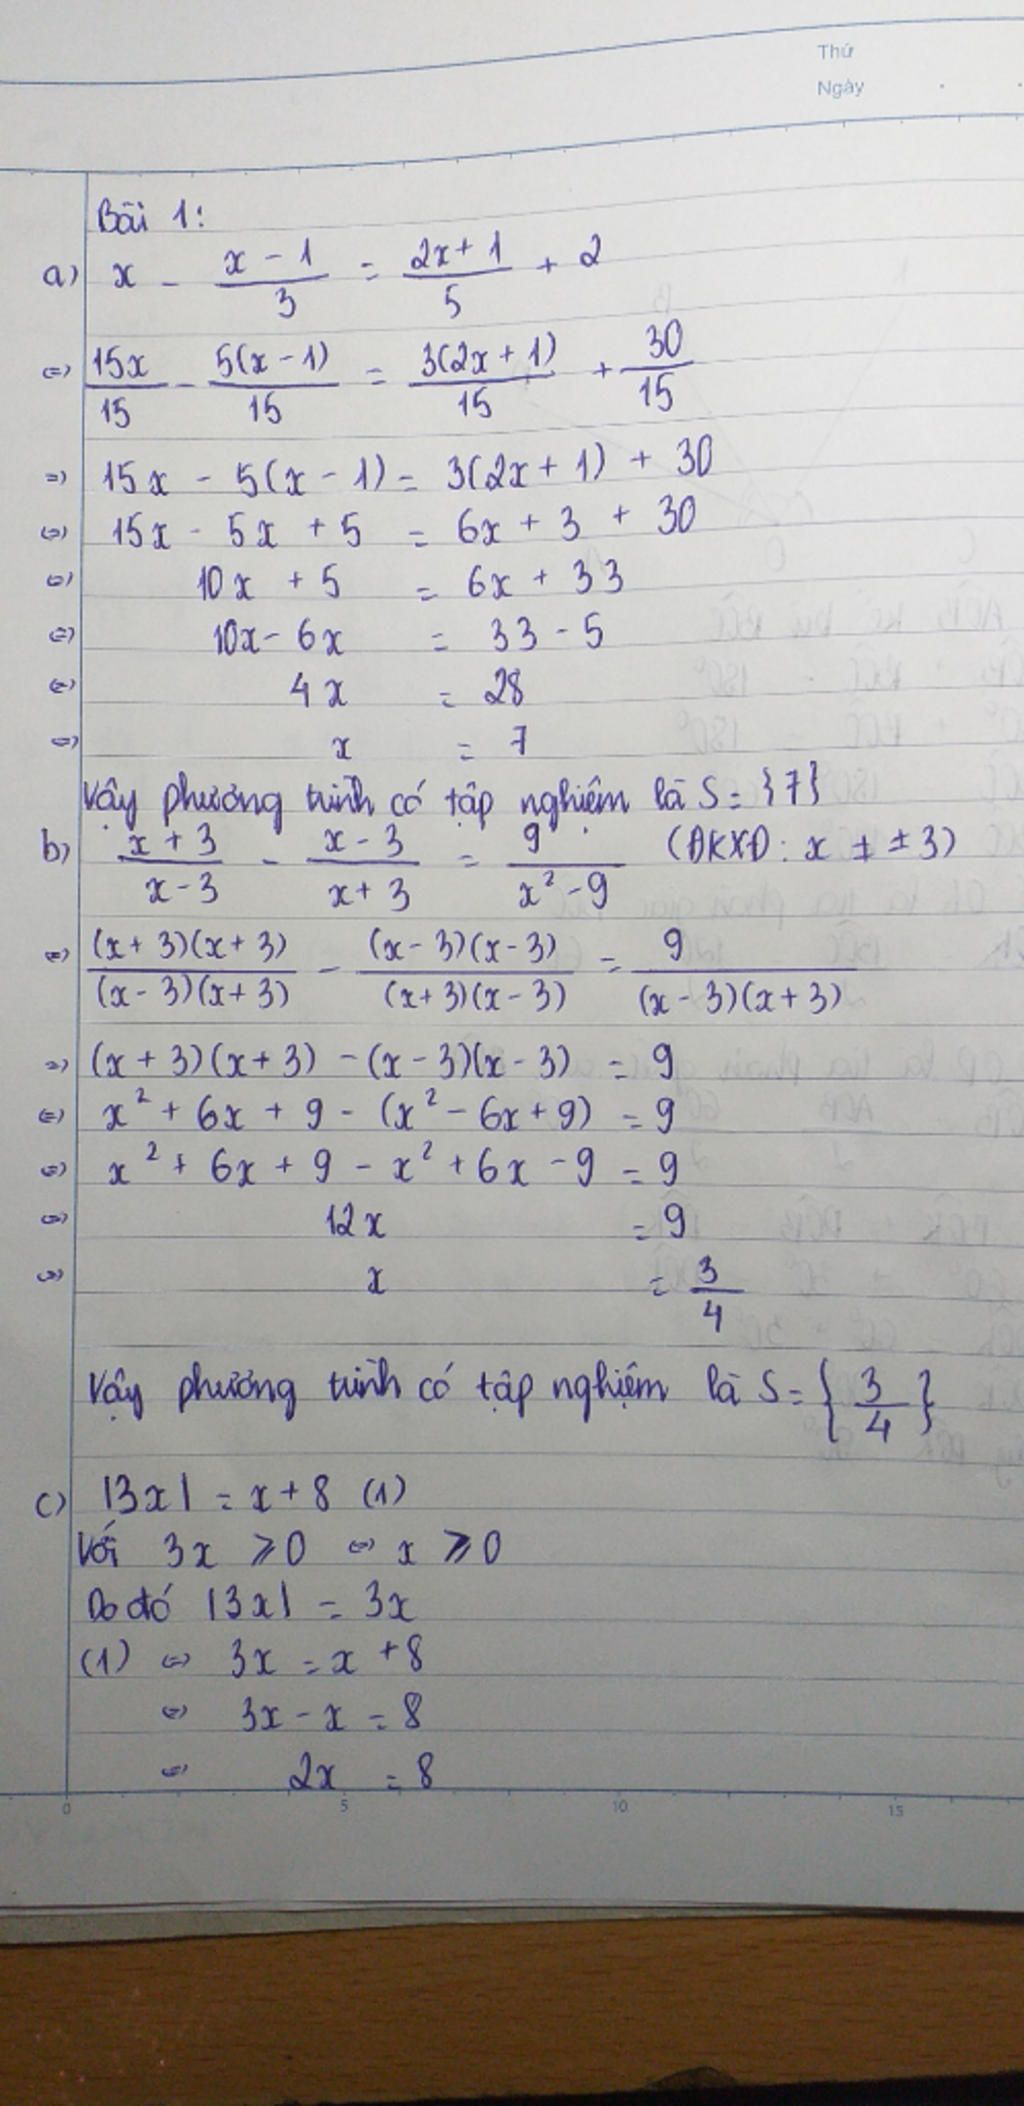 Thứ
Ngày
Bài 1:
a) x - (x - 1)/3 = (2x + 1)/5 + 2
<=> 15x/15 - 5(x - 1)/15 = 3(2x + 1)/15 + 30/15
=> 15x - 5(x - 1) = 3(2x + 1) + 30
<=> 15x - 5x + 5 = 6x + 3 + 30
<=> 10x + 5 = 6x + 33
<=> 10x - 6x = 33 - 5
<=> 4x = 28
<=> x = 7
Vậy phương trình có tập nghiệm là S = {7}
b) (x + 3)/(x - 3) - (x - 3)/(x + 3) = 9/(x² - 9) (ĐKXĐ: x ≠ ±3)
<=> (x + 3)(x + 3)/(x - 3)(x + 3) - (x - 3)(x - 3)/(x + 3)(x - 3) = 9/(x - 3)(x + 3)
=> (x + 3)(x + 3) - (x - 3)(x - 3) = 9
<=> x² + 6x + 9 - (x² - 6x + 9) = 9
<=> x² + 6x + 9 - x² + 6x - 9 = 9
<=> 12x = 9
<=> x = 3/4
Vậy phương trình có tập nghiệm là S = {3/4}
c) |3x| = x + 8 (1)
Với 3x ⩾ 0 <=> x ⩾ 0
Do đó |3x| = 3x
(1) <=> 3x = x + 8
<=> 3x - x = 8
<=> 2x = 8
0 5 10 15